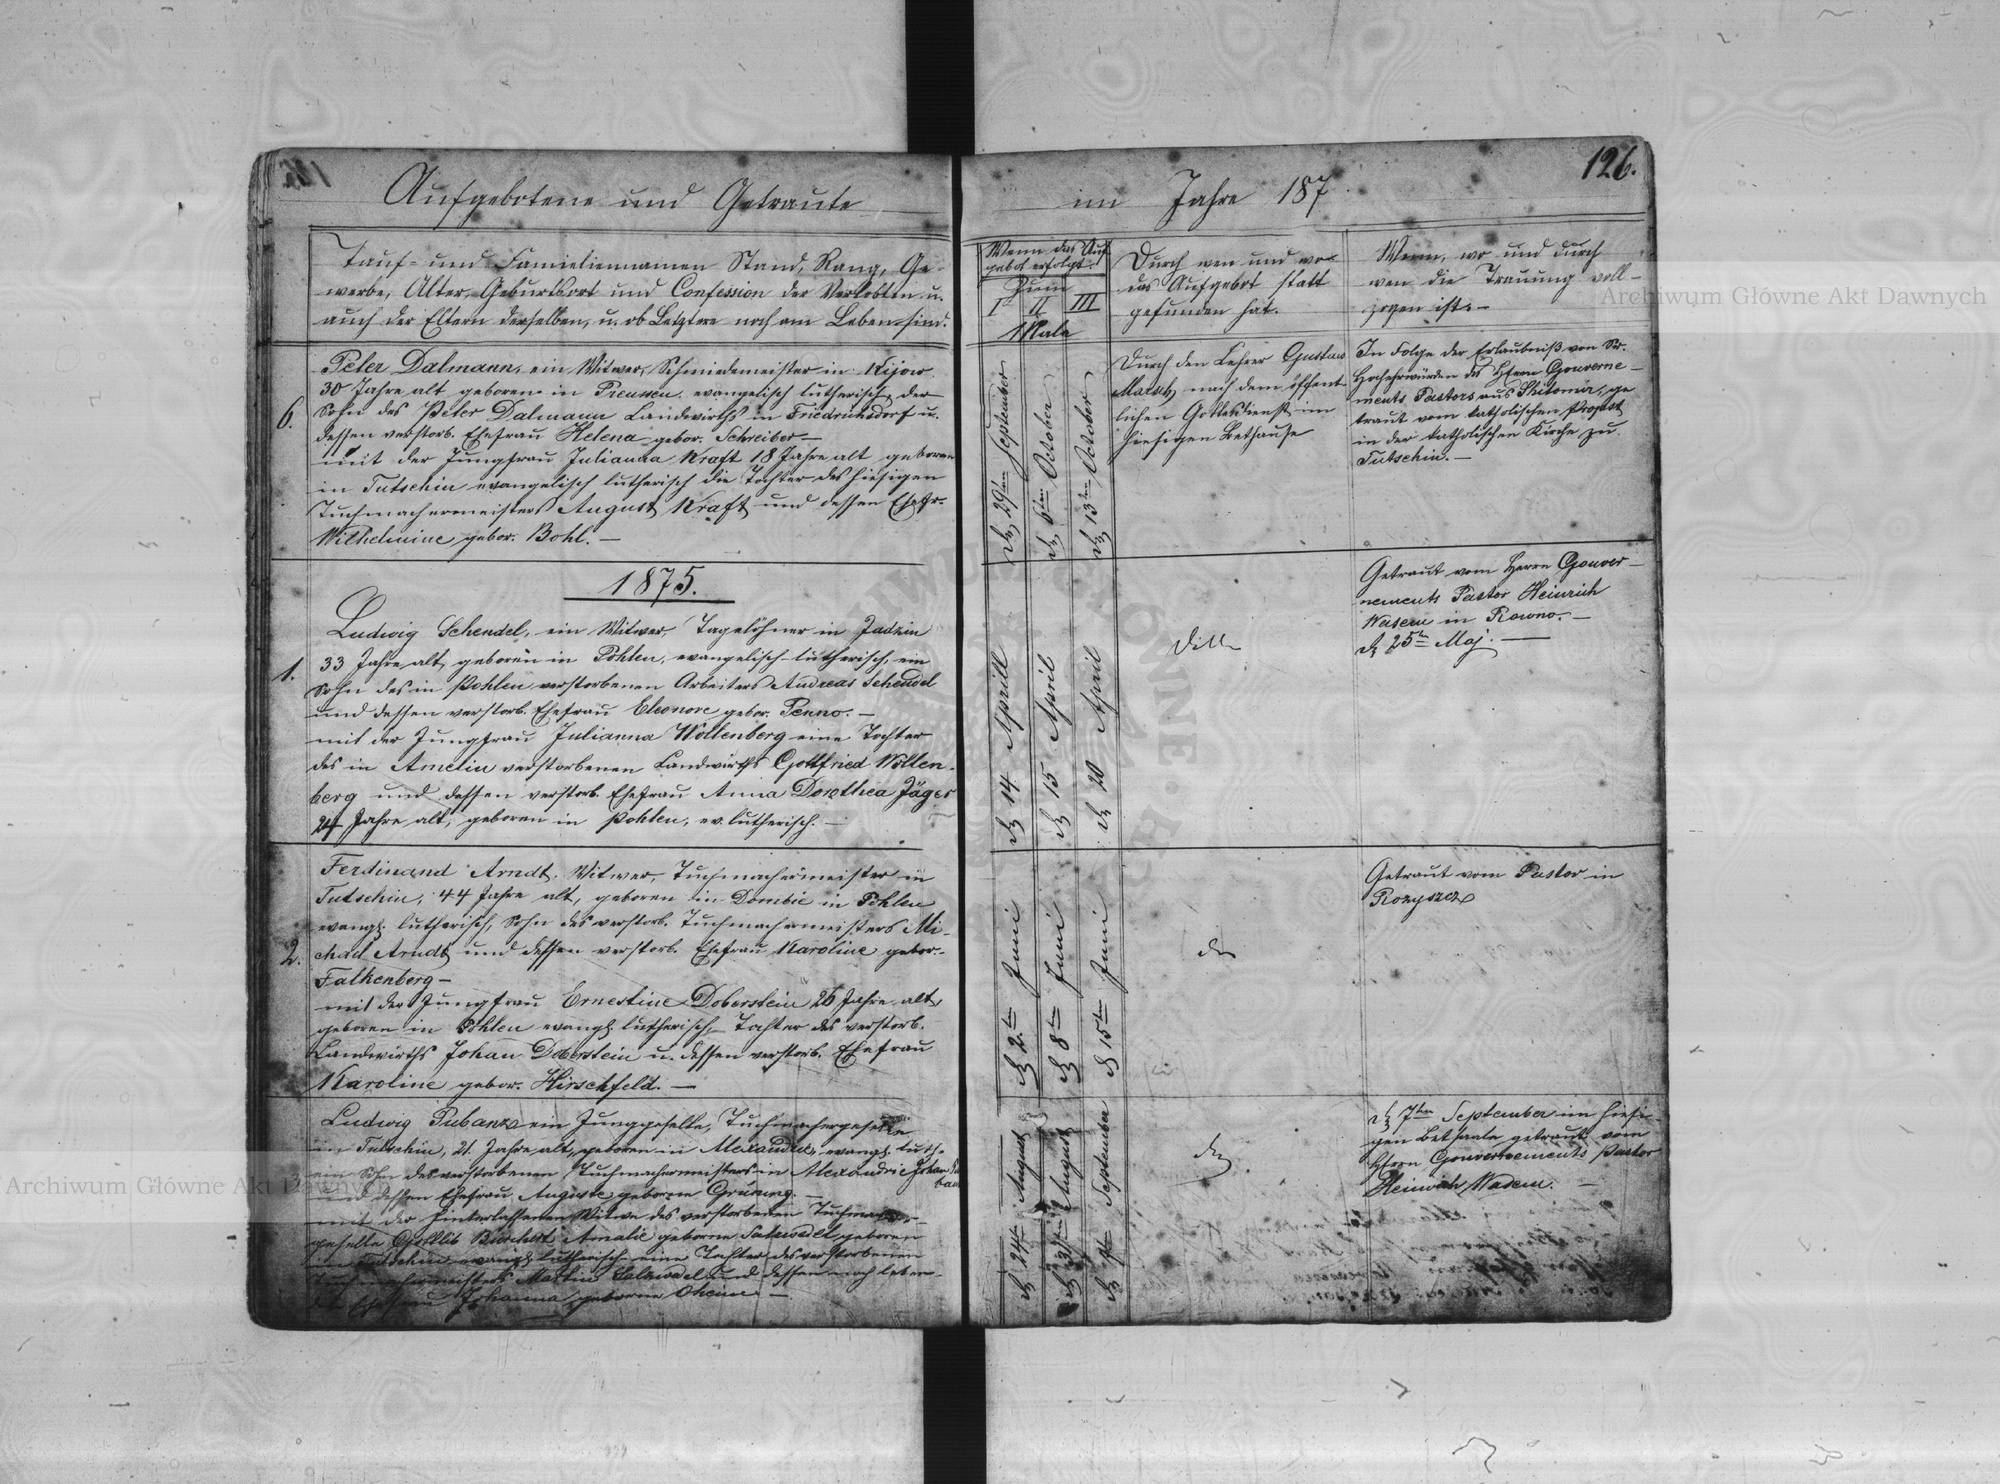 126.
Aufgebotene und Getraute
im Jahre 187
Tauf- und Famieliennamen Stand, Rang, Ge-
werbe, Alter, Geburtsort und Confession der Verlobten u.
auch der Eltern derselben, u. ob Letztere noch am Leben sind.
Wenn das Auf-
gebot erfolgt.
Zum
I II III
Male
Durch wen und wo
das Aufgebot statt
gefunden hat.
Wenn, wo und durch
wen die Trauung voll-
zogen ist.-
6.
Peter Dalmann, ein Witwer, Schmiedemeister in Kijow
30 Jahre alt geboren in Preussen evangelisch lutherisch, der
Sohn des Peter Dalmann Landwirths in Friedrichsdorf u.
dessen verstorb. Ehefrau Helena gebor. Schreiber-
mit der Jungfrau Julianna Kraft 18 Jahre alt geboren
in Tutschin evangelisch lutherisch die Tochter des hiesigen
Tuchmachermeisters August Kraft und dessen Ehefr.
Wilhelmine gebor. Bohl.-
d. 29ten September
d. 6ten October
d. 13ten October
Durch den Lehrer Gustaw
nach dem öffent-
lichen Gottesdienst im
hiesigen Bethause
In Folge der Erlaubniß von Sr.
Hochehrwürden des Herrn Gouverne-
ments Pastors aus Shitomir, ge
traut vom katholischen Probst
in der katholischen Kirche zu
Tutschin.-
1875.
1.
Ludwig Schendel, ein Witwer, Tagelöhner in
33 Jahre alt, geboren in Pohlen, evangelisch-lutherisch, ein
Sohn des in Pohlen verstorbenen Arbeiters Andreas Schendel
und dessen verstorb. Ehefrau Eleonore gebor. Penno.-
mit der Jungfrau Julianna Wollenberg eine Tochter
des in Amelin verstorbenen Landwirths Gottfried Wollen-
berg und dessen verstorb. Ehefrau Anna Dorothea Jäger
24 Jahre alt, geboren in Pohlen, ev. lutherisch.-
d. 14 Aprill
d. 15 April
d. 20 April
Getraut vom Herrn Gouver-
nements Pastor Heinrich
Wasem in Rowno.-
d. 25ten Maj.-
2.
Ferdinand Arndt, Witwer, Tuchmachermeister in
Tutschin, 44 Jahre alt, geboren in Dombie in Pohlen
evangl. lutherisch, Sohn des verstorb. Tuchmachermeisters Mi-
chael Arndt und dessen verstorb. Ehefrau Karoline gebor.
Falkenberg-
mit der Jungfrau Ernestine Doberstein 26 Jahre alt,
geboren in Pohlen evangl. lutherisch, Tochter des verstorb.
Landwirths Johan Doberstein u. dessen verstorb. Ehefrau
Karoline gebor. Hirschfeld.-
d. 2ten Juni
d. 8ten Juni
d. 15ten Juni
Getraut vom Pastor in
Rozyszcz
Ludwig ein Junggeselle, Tuchmachergeselle
in Tutschin, 21 Jahre alt, geboren in Alexandria, evangl. luth.
ein Sohn des verstorbenen Tuchmachermeisters in Alexandrie Johan
und dessen Ehefrau Auguste geborne Grüning.-
mit der hinterlassenen Witwe des verstorbenen Tuchmacher-
geselle Gottlib Amalie geborne Salzwedel geboren
in Tutschin evangl. lutherisch eine Tochter des verstorbenen
Tuchmachermeisters Martin Salzwedel und dessen noch leben-
den Ehefrau Johanna geborne
d. 24ten August
d. 31ten August
d. September
d. 7ten September im hiesi-
gen Betsaale getraut vom
Herrn Gouvernements Pastor
Heinrich Wasem.-
Archiwum Główne Akt Dawnych
Archiwum Główne Akt Dawnych